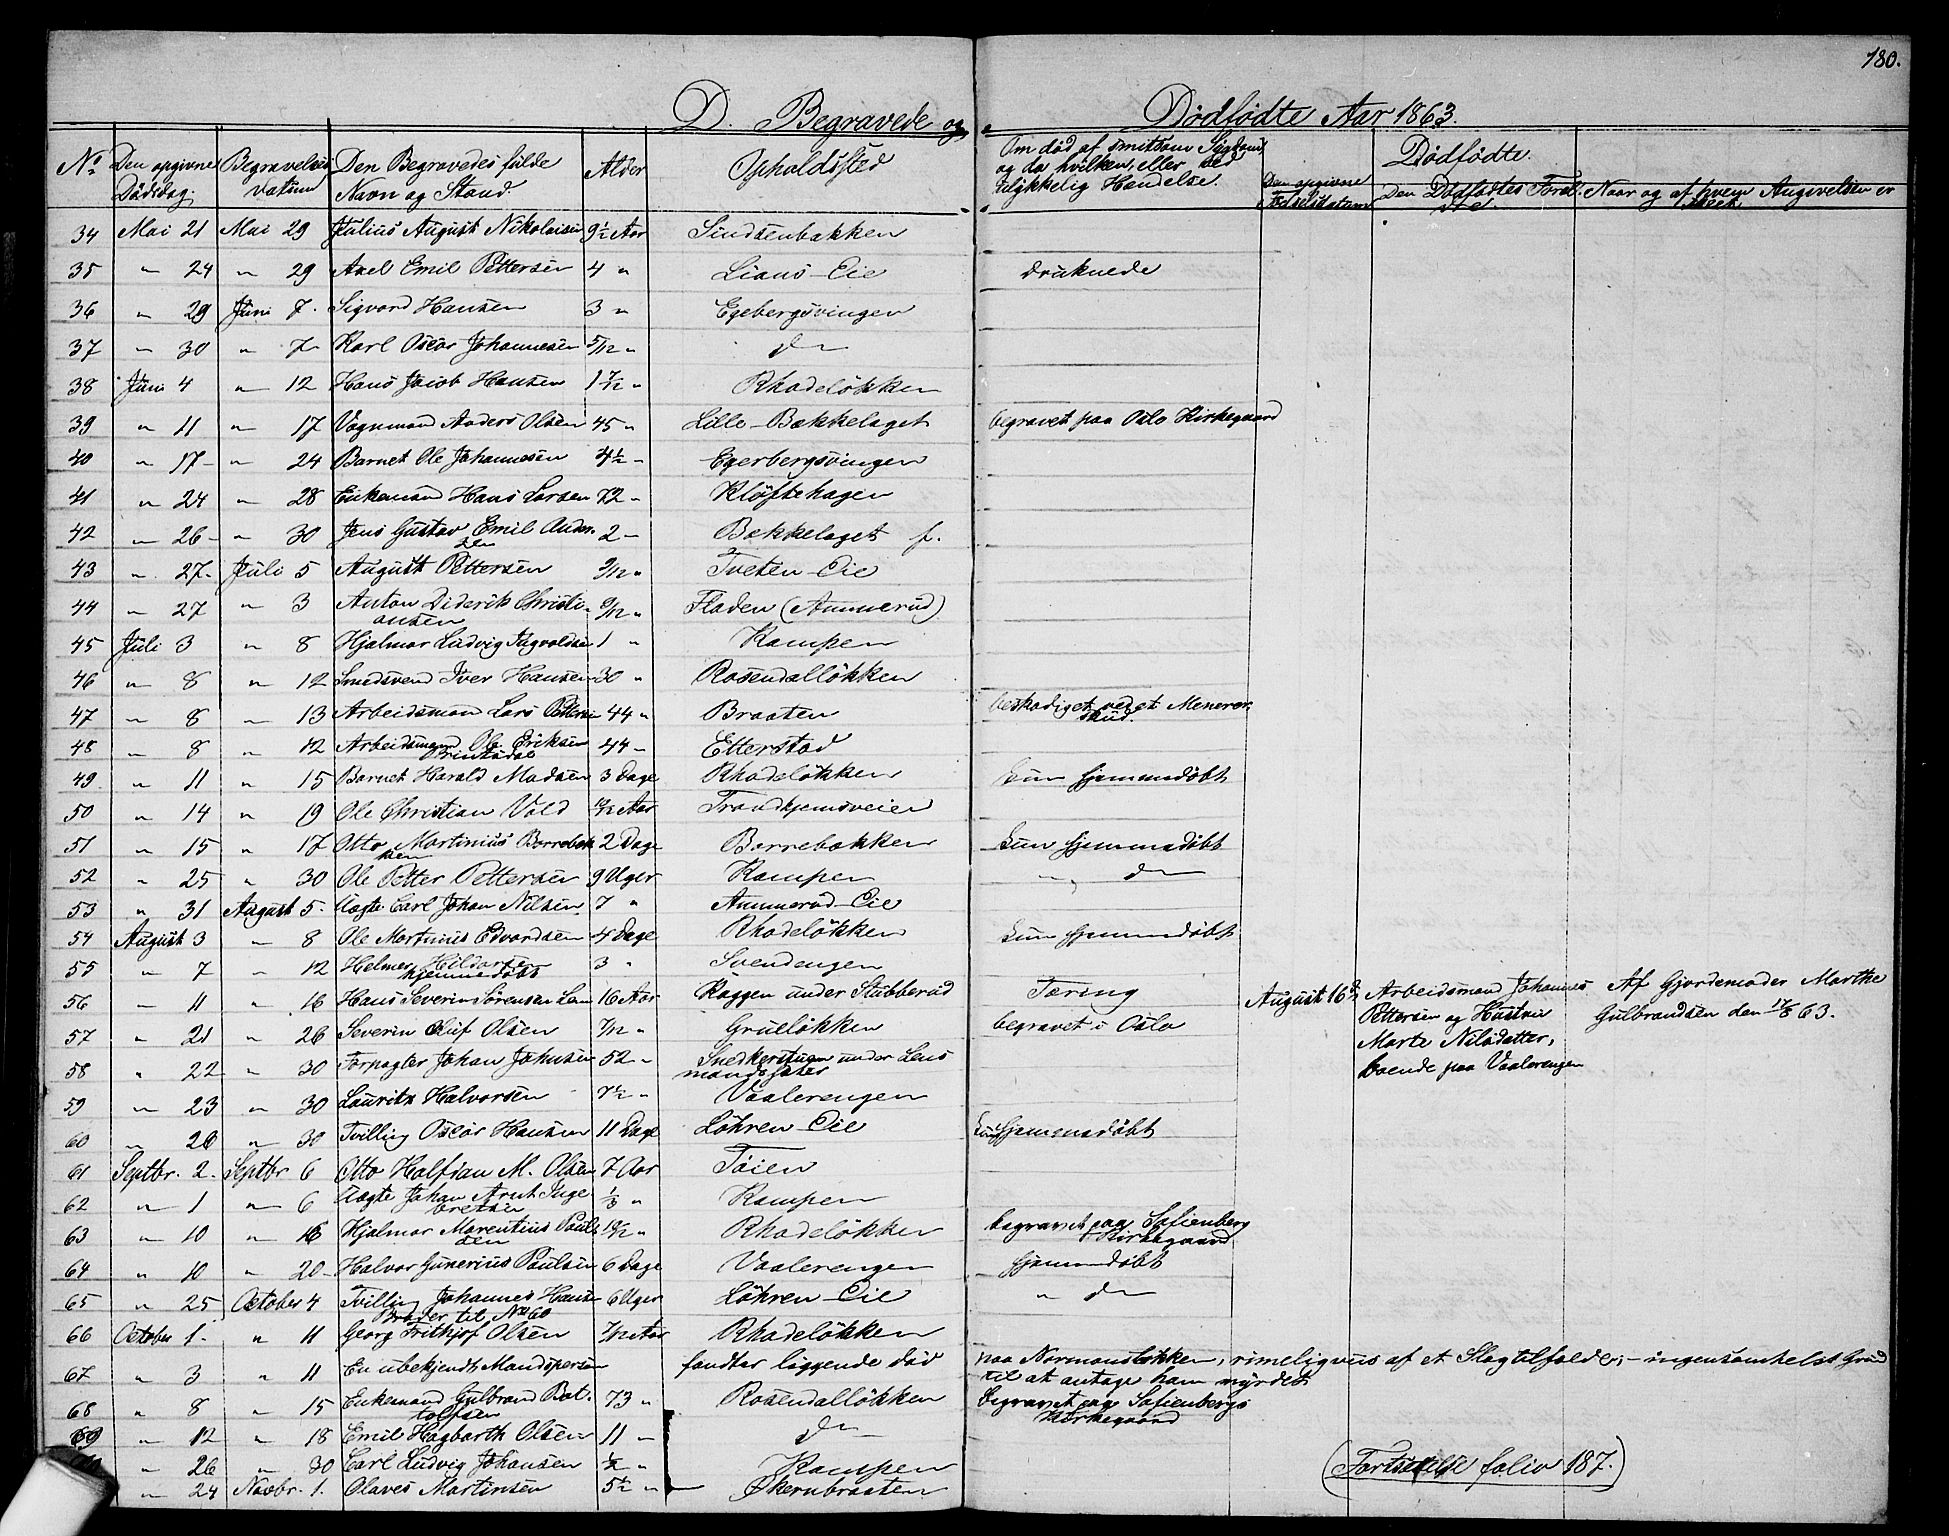 180.
D. Begravede og Dødfødte Aar 1863.
No Den opgivne Dødsdag. Begravelses datum Den Begravedes fulde Navn og Stand. Alder Opholdssted Om død af smitsom Sygdom, og da hvilken, eller ved ulykkelig Hændelse. Dødfødte.
Den opgivne Fødselsdatum Den Dødfødtes Foræl- Naar og af hvem Angivelsen er skeet
34 Mai 21 Mai 29 Julius August Nikolaisen 9½ Aar Sinsenbakken
35 " 24 " 29 Axel Emil Pettersen 4 " Lians Eie druknede
36 " 29 Juni 7. Sigvard Hansen 3 " Egebergsvingen
37 " 30 " 7 Karl Oscar Johannesen 5/12 " do
38 Juni 4 " 12 Hans Jacob Hansen 1 7/12 " Rhodeløkken
39 " 11 " 17 Vognmand Anders Olsen 45 " Lille Bækkelaget begravet paa Oslo Kirkegaard
40 " 17 " 24 Barnet Ole Johannesen 4½ " Egerbergsvingen
41 " 24 " 28 Enkemand Hans Larsen 72 " Kløftehagen
42 " 26 " 30 Jens Gustav Emil Ander-
sen 2 " Bækkelaget f.
43 " 27 Juli 5 August Pettersen 9/12 " Tveten Eie
44 " 27 " 3 Anton Diderik Christi-
ansen 9/12 " Fladen (Ammerud)
45 Juli 3 " 8 Hjalmar Ludvig Ingvaldsen 1 " Kampen
46 " 8 " 12 Smedsvend Iver Hansen 30 " Rosendalløkken
47 " 8 " 13 Arbeidsmand Lars Pettersen 44 " Braaten beskadiget ved et Minerer-
skud.
48 " 8 " 12 Arbeidsmand Ole Eriksen 44 " Etterstad
49 " 11 " 15 Barnet Harald Madsen 3 Dage Rhodeløkken kun hjemmedøbt
50 " 14 " 19 Ole Christian Vold 10/12 Aar Trondhjemsveien
51 " 15 " 17 Otto Martinius Borrebak-
ken 2 Dage Berrebakken kun hjemmedøbt
52 " 25 " 30 Ole Petter Pettersen 9 Uger Kampen " do
53 " 31 August 5. Uægte Carl Johan Nilsen 7 " Ammerud Eie
54 August 3 " 8 Ole Martinius Edvardsen 4 Dage Rhodeløkken kun hjemmedøbt
55 " 7 " 12 Helmer Hildorsen
hjemmedøbt 3 " Svendengen
56 " 11 " 16 Hans Severin Sørensen 16 Aar Kaggen under Stubberud Tæring August 16de Arbeidsmand Johannes Af Gjordemoder Marthe
57 " 21 " 26 Severin Oluf Olsen 7/12 " Grueløkken begravet i Oslo Pettersen og Hustru Gulbrandsen den 17/8 63.
Marte Nilsdatter,
58 " 22 " 30 Forpagter Johan Johnsen 52 " Snekkerstuen under Lens-
mandssæter boende paa Vaalerengen
59 " 23 " 30 Lauritz Halvorsen 7½ " Vaalerengen
60 " 26 " 30 Tvilling Oscar Hansen 11 Dage Løhren Eie kun hjemmedøbt
61 Septbr. 2. Septbr 6 Otto Halfdan M. Olsen 7 Aar Tøien
62 " 1 " 6 Uægte Johan Arnt Inge-
bretsen 1/3 " Kampen
63 " 10 " 16 Hjalmar Marentius Pauls-
sen 10/12 " Rhodeløkken begravet paa Sofienberg
Kirkegaard
64 " 10 " 20 Halvor Gunerius Paulsen 6 Dage Vaalerengen hjemmedøbt
65 " 25 October 4 Tvilling Johannes Hansen 6 Uger Løhren Eie " do
Broder til No 60
66 October 1. " 11 Georg Frithjof Olsen 7/12 Aar Rhodeløkken
67 " 3 " 11 En ubekjendt Mandsperson fandtes liggende død paa Normandsløkken, rimeligvis af et Slagtilfælde, – ingensomhelst Grund
til at antage ham myrdet
68 " 8 " 15 Enkemand Gulbrand Bot-
tolfsen 73 " Rosendalløkken begravet paa Sofienbergs
Kirkegaard
69 " 12 " 18 Emil Hagbarth Olsen 11 " do
" 26 " 30 Carl Ludvig Johansen ½ " Kampen
" 24 Novbr. 1. Olaves Martinsen 5½ " Økernbraaten
(Fortsættelse folio 187.)